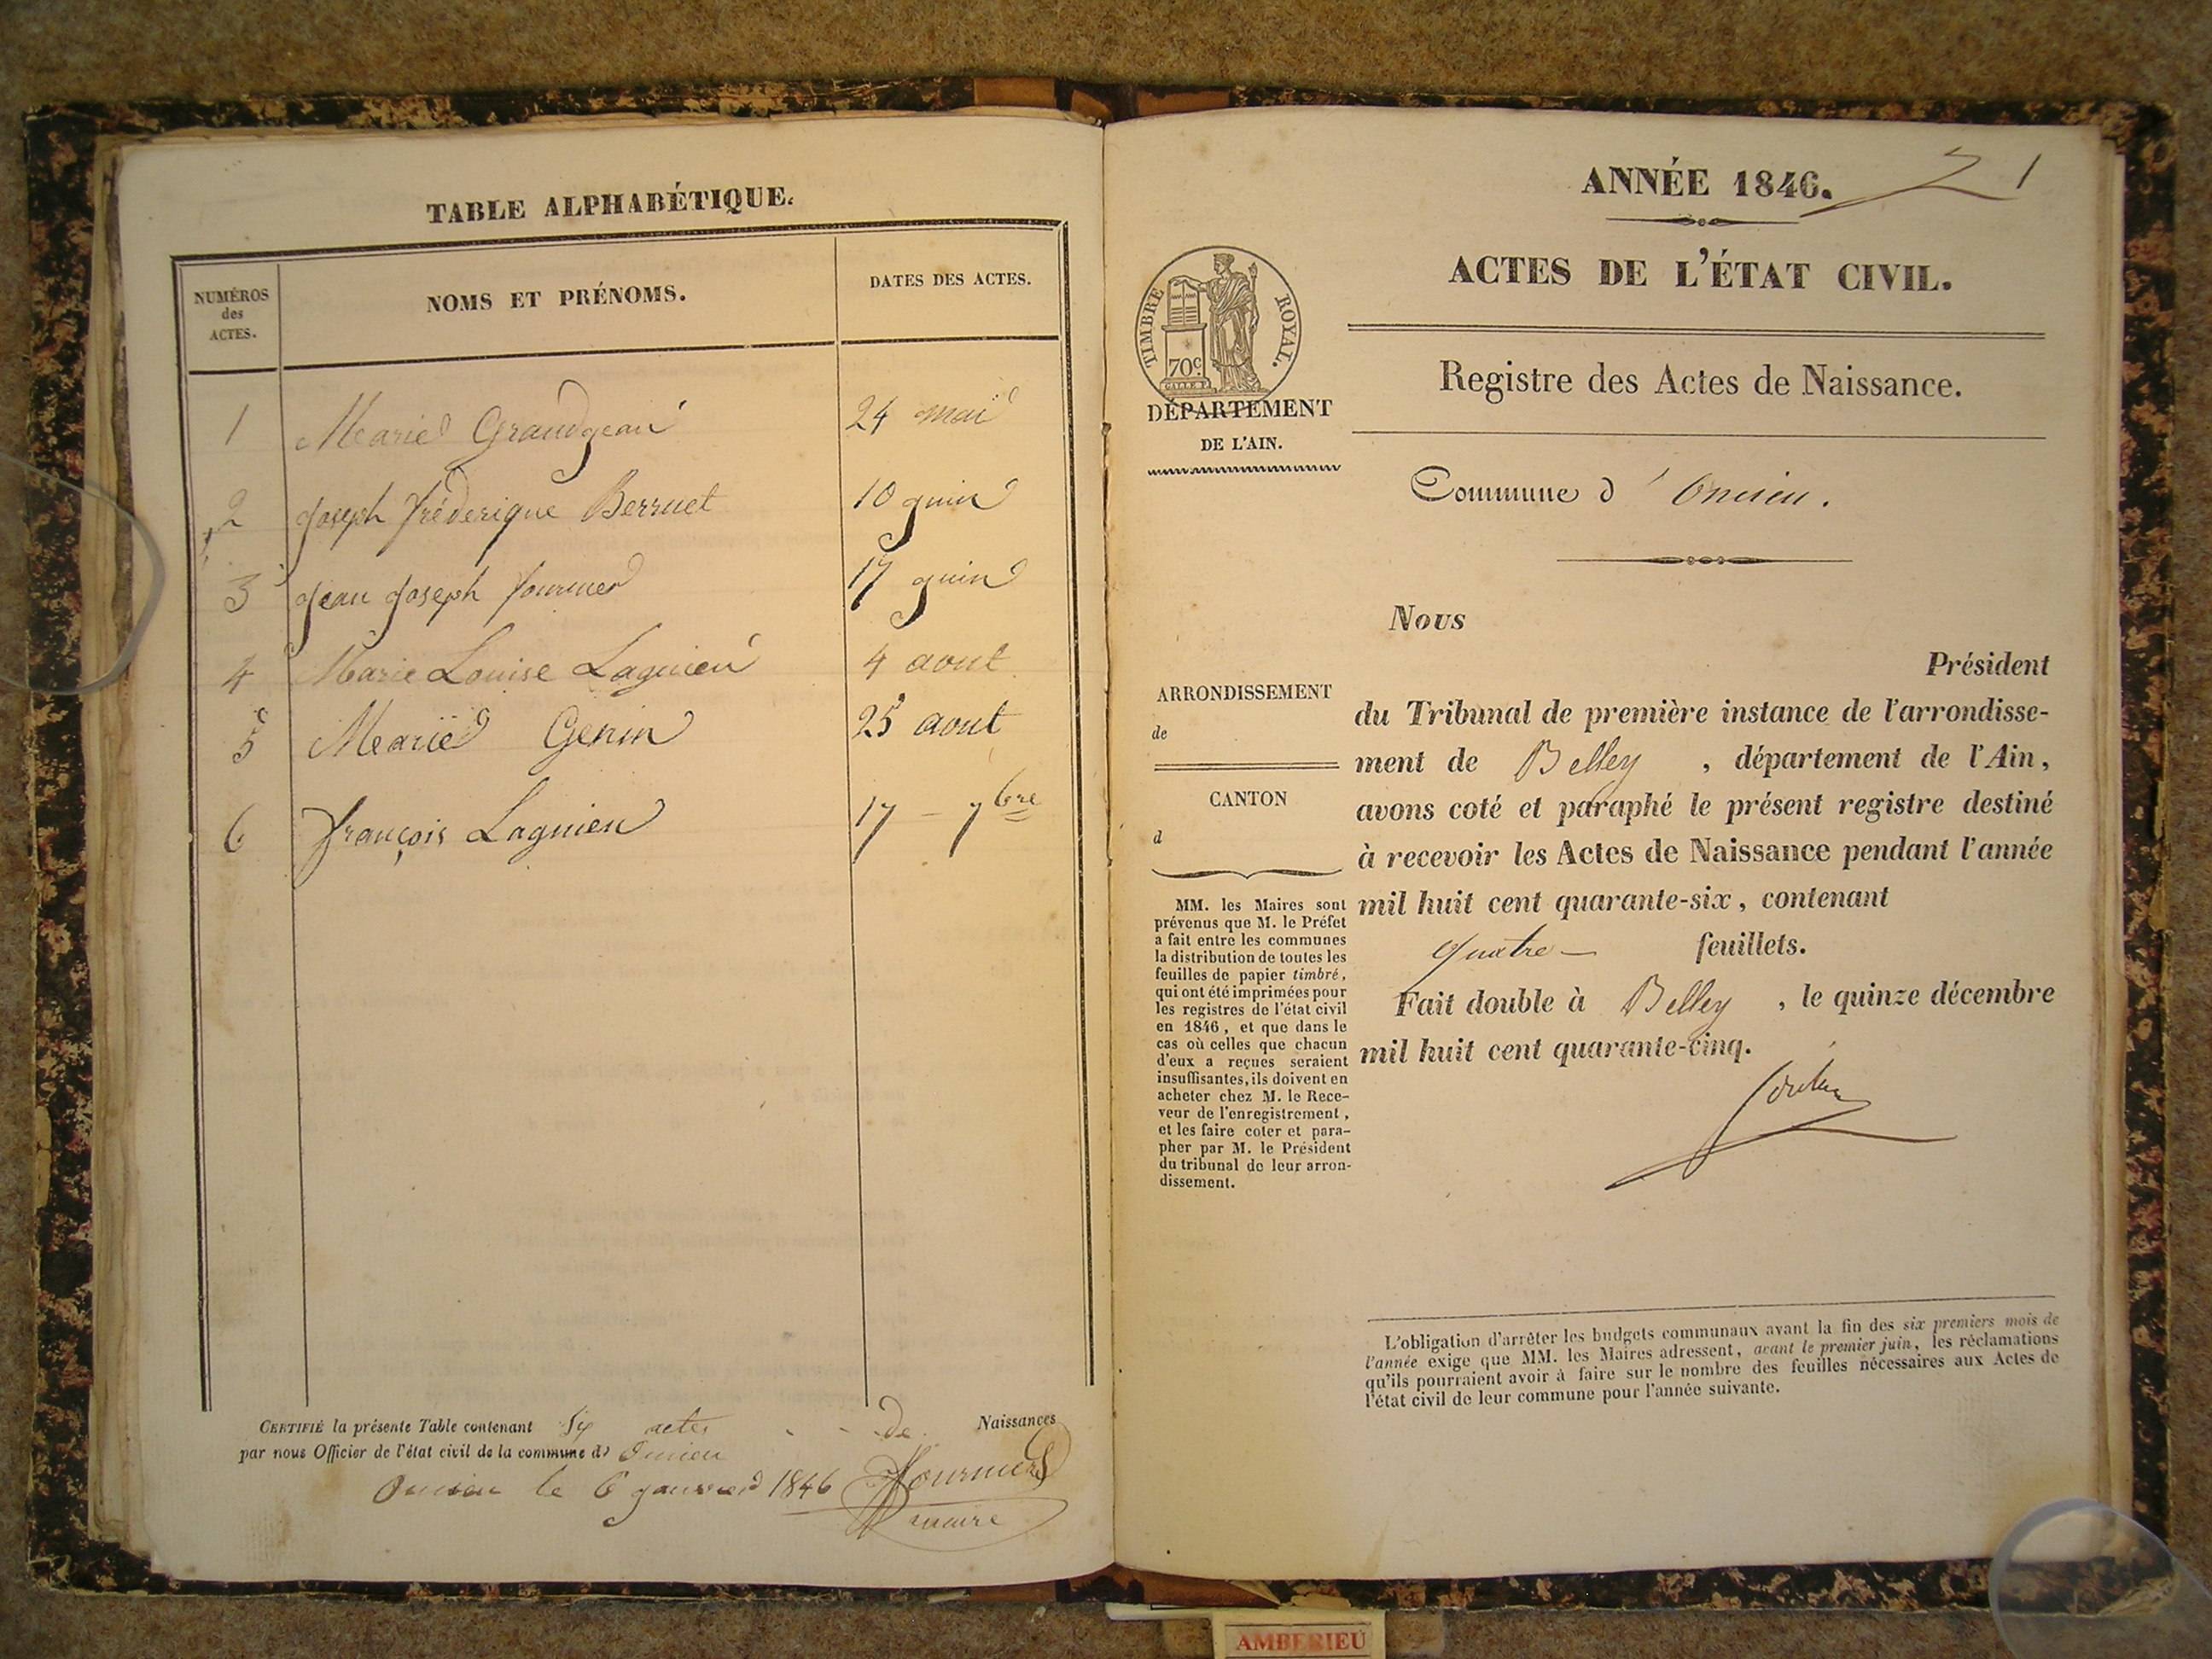 TABLE ALPHABÉTIQUE.
NUMÉROS
des
ACTES.
NOMS ET PRÉNOMS.
DATES DES ACTES.
1 Marie Grandgean 24 mai
2 Joseph fréderique Berruet 10 juin
3 Jean Joseph fournier 17 juin
4 Marie Louise Lagnieu 4 aout
5 Marie Genin 25 aout
6 françois Lagnieu 17 - 7bre
CERTIFIÉ la présente Table contenant six actes de Naissances
par nous Officier de l'état civil de la commune d' Oncieu
Oncieu le 6 janvier 1846 Fournier
maire
ANNÉE 1846. 1
ACTES DE L'ÉTAT CIVIL.
TIMBRE ROYAL.
70c.
DÉPARTEMENT
DE L'AIN.
Registre des Actes de Naissance.
Commune d' Oncieu.
Nous
Président
du Tribunal de première instance de l'arrondisse-
ment de Belley , département de l'Ain,
avons coté et paraphé le présent registre destiné
à recevoir les Actes de Naissance pendant l'année
mil huit cent quarante-six, contenant
quatre — feuillets.
Fait double à Belley , le quinze décembre
mil huit cent quarante-cinq.
ARRONDISSEMENT
de
CANTON
d
MM. les Maires sont
prévenus que M. le Préfet
a fait entre les communes
la distribution de toutes les
feuilles de papier timbré,
qui ont été imprimées pour
les registres de l'état civil
en 1846, et que dans le
cas où celles que chacun
d'eux a reçues seraient
insuffisantes, ils doivent en
acheter chez M. le Rece-
veur de l'enregistrement,
et les faire coter et para-
pher par M. le Président
du tribunal de leur arron-
dissement.
L'obligation d'arrêter les budgets communaux avant la fin des six premiers mois de
l'année exige que MM. les Maires adressent, avant le premier juin, les réclamations
qu'ils pourraient avoir à faire sur le nombre des feuilles nécessaires aux Actes de
l'état civil de leur commune pour l'année suivante.
AMBERIEU